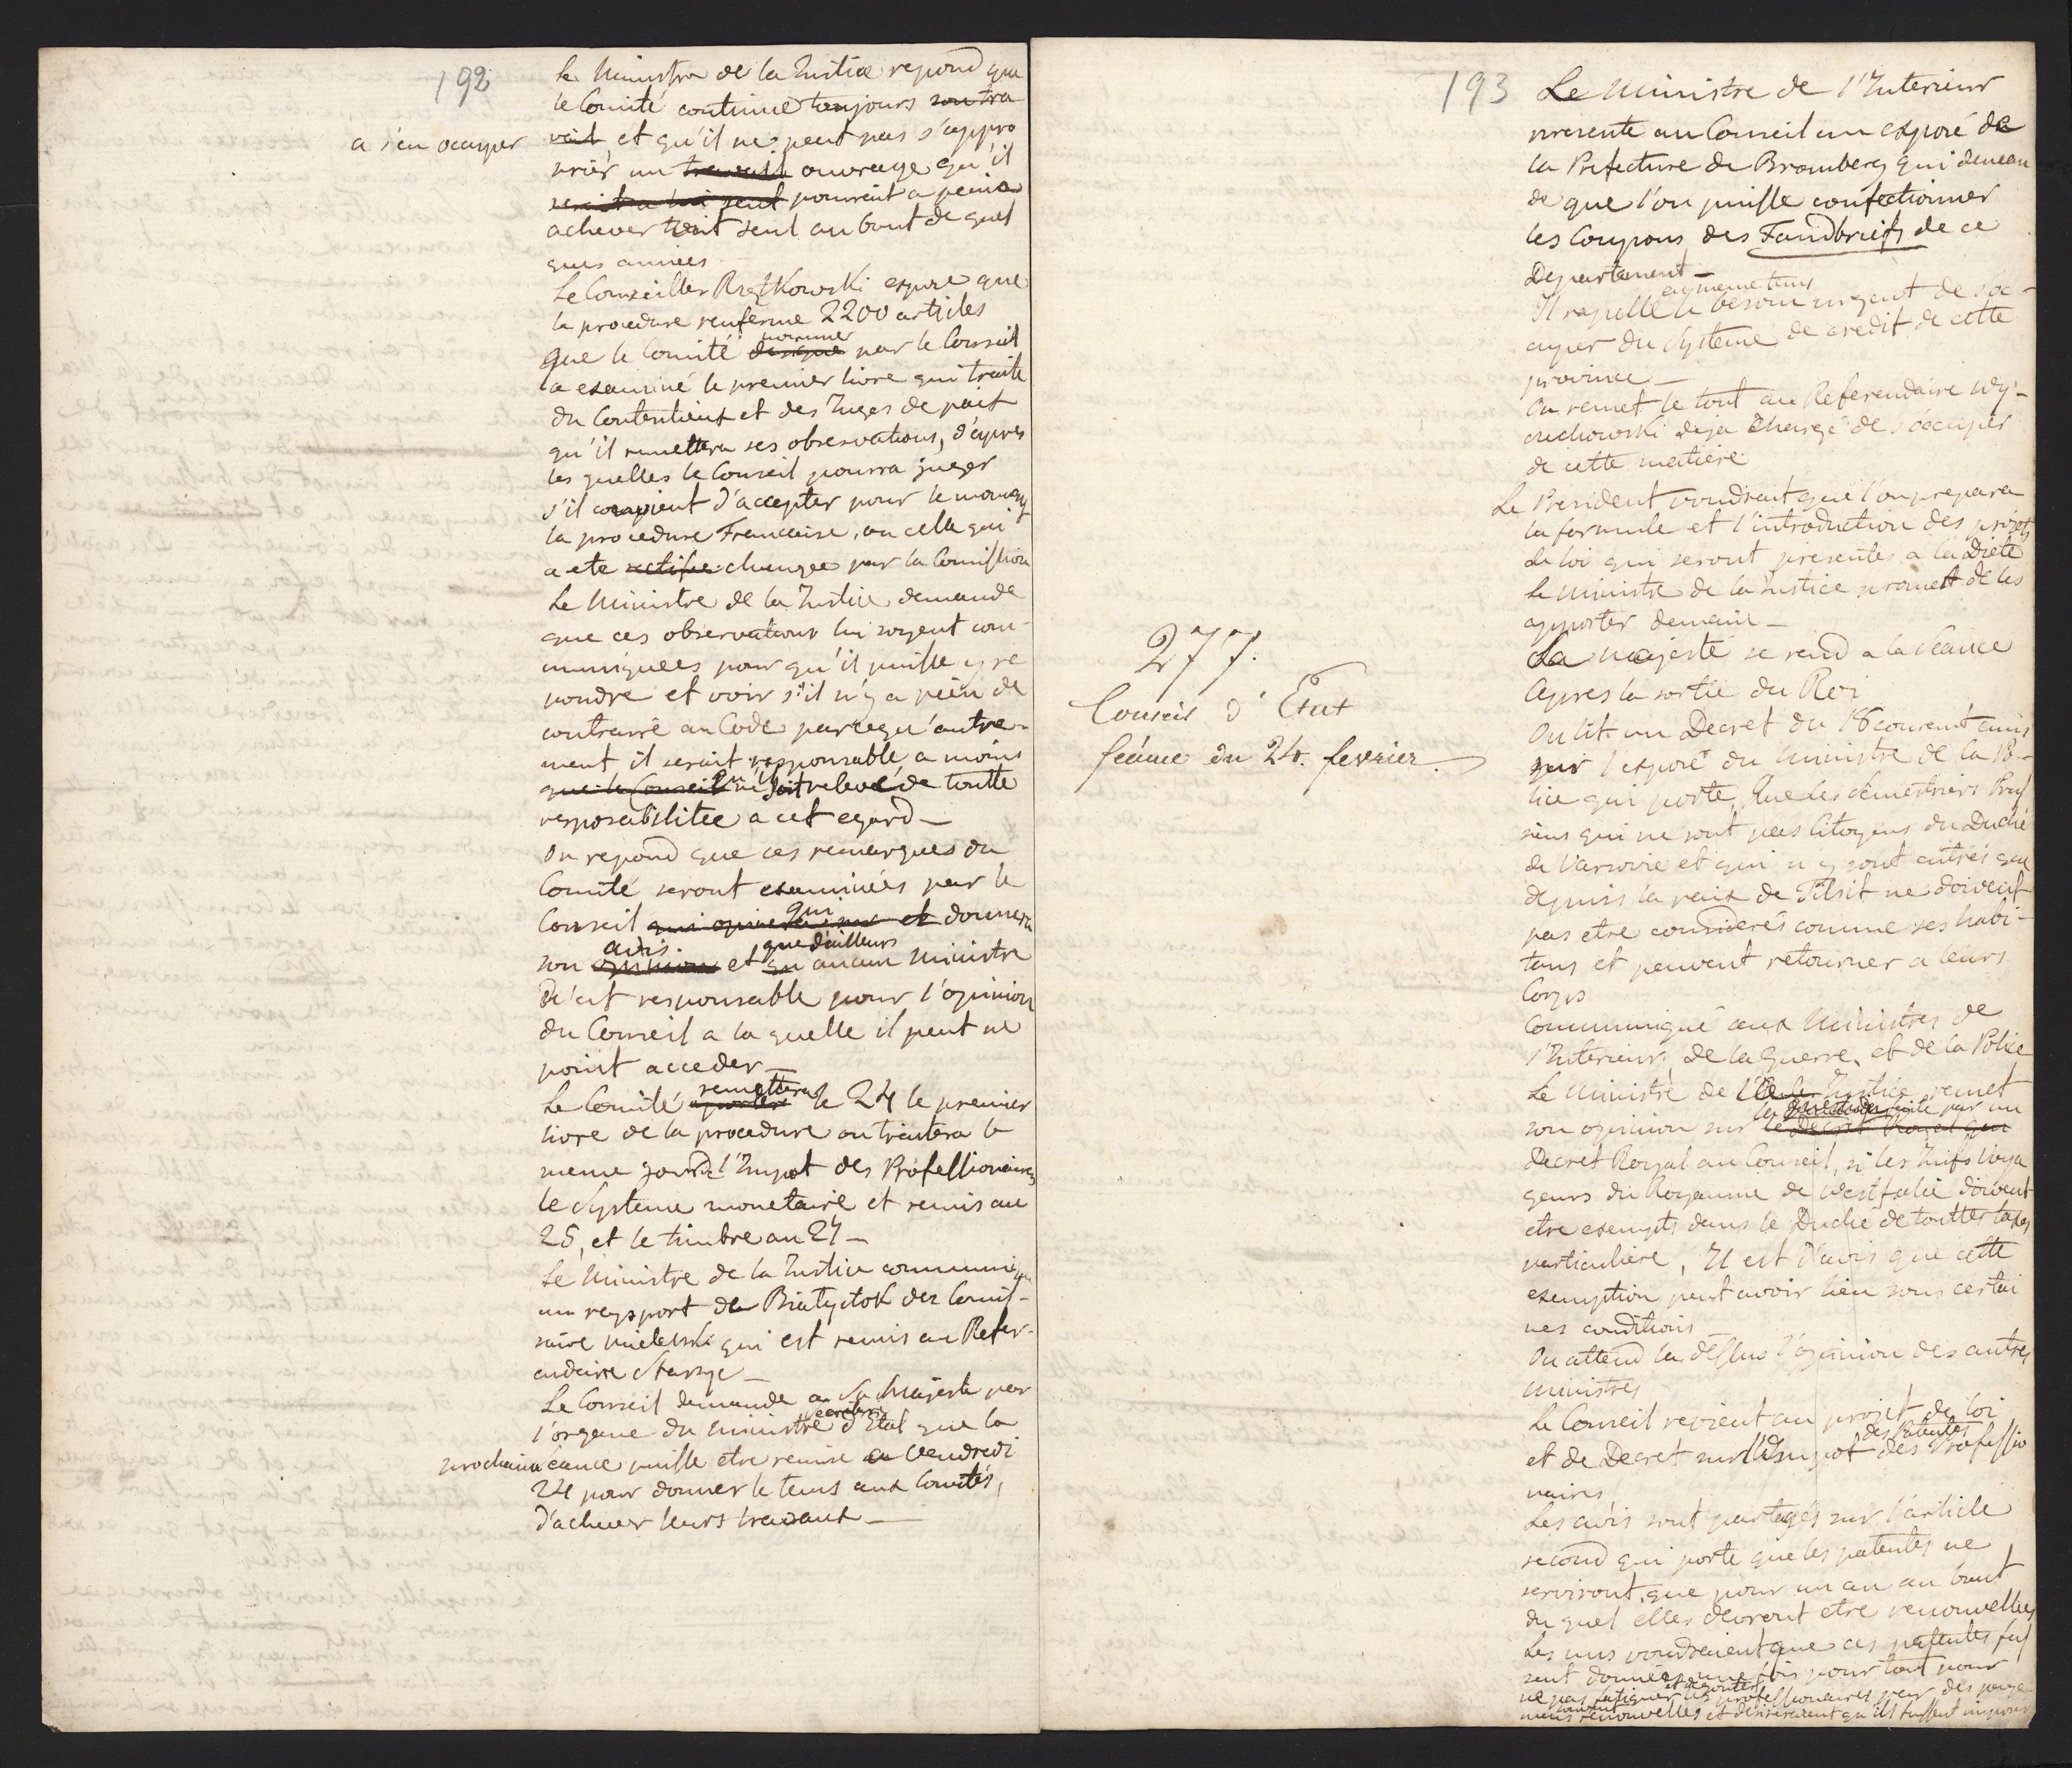 192
Le Ministre de la Justice repond que
le Comité continue toujours son tra
a s'en occuper
vail et qu'il ne peut pas s'appro
prier un travail ouvrage qu'il
seroit a lui seul pourroit a peine
achever tout seul au bout de quel
ques années
Le Conseiller Rzętkowski expose que
la procedure renferme 2200 articles
nommé
que le Comité designé par le Conseil
a examiné le premier livre qui traite
du Contentieux et des Juges de paix
qu'il remettera ses observations, d'apres
les quelles le Conseil pourra juger
s'il convient d'accepter pour le
la procedure Francaise, ou celle qui
a ete changee par la Comission
Le Ministre de la Justice demande
que ces observations lui soyent com-
muniquees pour qu'il puisse y re
pondre et voir s'il n'y a rien de
contraire au Code parcequ'autre-
ment il serait responsable, a moins
qu'il
que le Conseil ne soit relevé de toutte
resposabilitée a cet egard —
On repond que ces remarques du
Comité seront examinées par le
qui
Conseil qui et donnera
avis que d'ailleurs
son opinion et aucun Ministre
n'est responsable pour l'opinion
du Conseil a la quelle il peut ne
point acceder —
remettera
Le Comité le 24 le premier
livre de la procedure on traitera le
meme jour l'Impot des Professionaires
le Systeme monetaire et remis au
25, et le timbre au 27 —
Le Ministre de la Justice communique
un rapport de Białystok des Comis-
saire Mielewski qui est remis au Refer-
endaire Starzę —
Le Conseil demande a Sa Majesté par
Secretaire
l'organe du Ministre d'Etat que la
prochaine séance puisse etre remise au Vendredi
24 pour donner le tems aux Comités,
d'achever leurs travaux —
193
277.
Conseil d'Etat
séance du 24. fevrier.
Le Ministre de l'Interieur
presente au Conseil un exposé de
la Prefecture de Bromberg qui deman
de que l'on puisse confectionner
les Coupons des Fandbriefs de ce
Departement —
en meme tems
Il rapelle le besoin urgent de s'oc-
cuper du Systeme de credit de cette
province —
On remet le tout au Referendaire Wy-
czechowski deja chargé de s'occuper
de cette matiere
Le President voudrait que l'on prepara
la formule et l'introduction des projets
de loi qui seront presentés a la Diete
Le Ministre de la Justice promet de les
apporter demain —
Sa Majesté se rend a la séance
Apres la sortie du Roi
On lit un Decret du 18 courent emis
sur l'exposé du Ministre de la Po-
lice qui porte, Que les Semestriers Prus
siens qui ne sont pas Citoyens du Duché
de Varsovie et qui n'y sont entrés que
depuis la paix de Tilsit ne doivent
pas etre considerés comme ses habi-
tans et peuvent retourner a leurs
Corps
Communiqué aux Ministres de
l'Interieur, de la Guerre, et de la Police
Le Ministre de la Justice remet
la question faite par un
son opinion sur le Decret Royal qui
Decret Royal au Conseil, si les Juifs voya
geurs du Royaume de Westfalie doivent
etre exempts dans le Duché de touttes taxes
particuliere, Il est d'avis que cette
exemption peut avoir lieu sous certai
nes conditions
On attend la dessus l'opinion des autres
Ministres
Le Conseil revient au projet de loi
des Patentes
et de Decret sur l'Impot des Professio
naires
Les avis sont partagés sur l'article
second qui porte que les patentes ne
serviront que pour un an au bout
du quel elles devront etre renouvellées
Les uns voudraient que ces patentes fus
sent données une fois pour tout pour
et degouter
ne pas fatiguer les professionaires par des paye
souvent
mens renouvelles et desireraient qu'ils fussent imposés